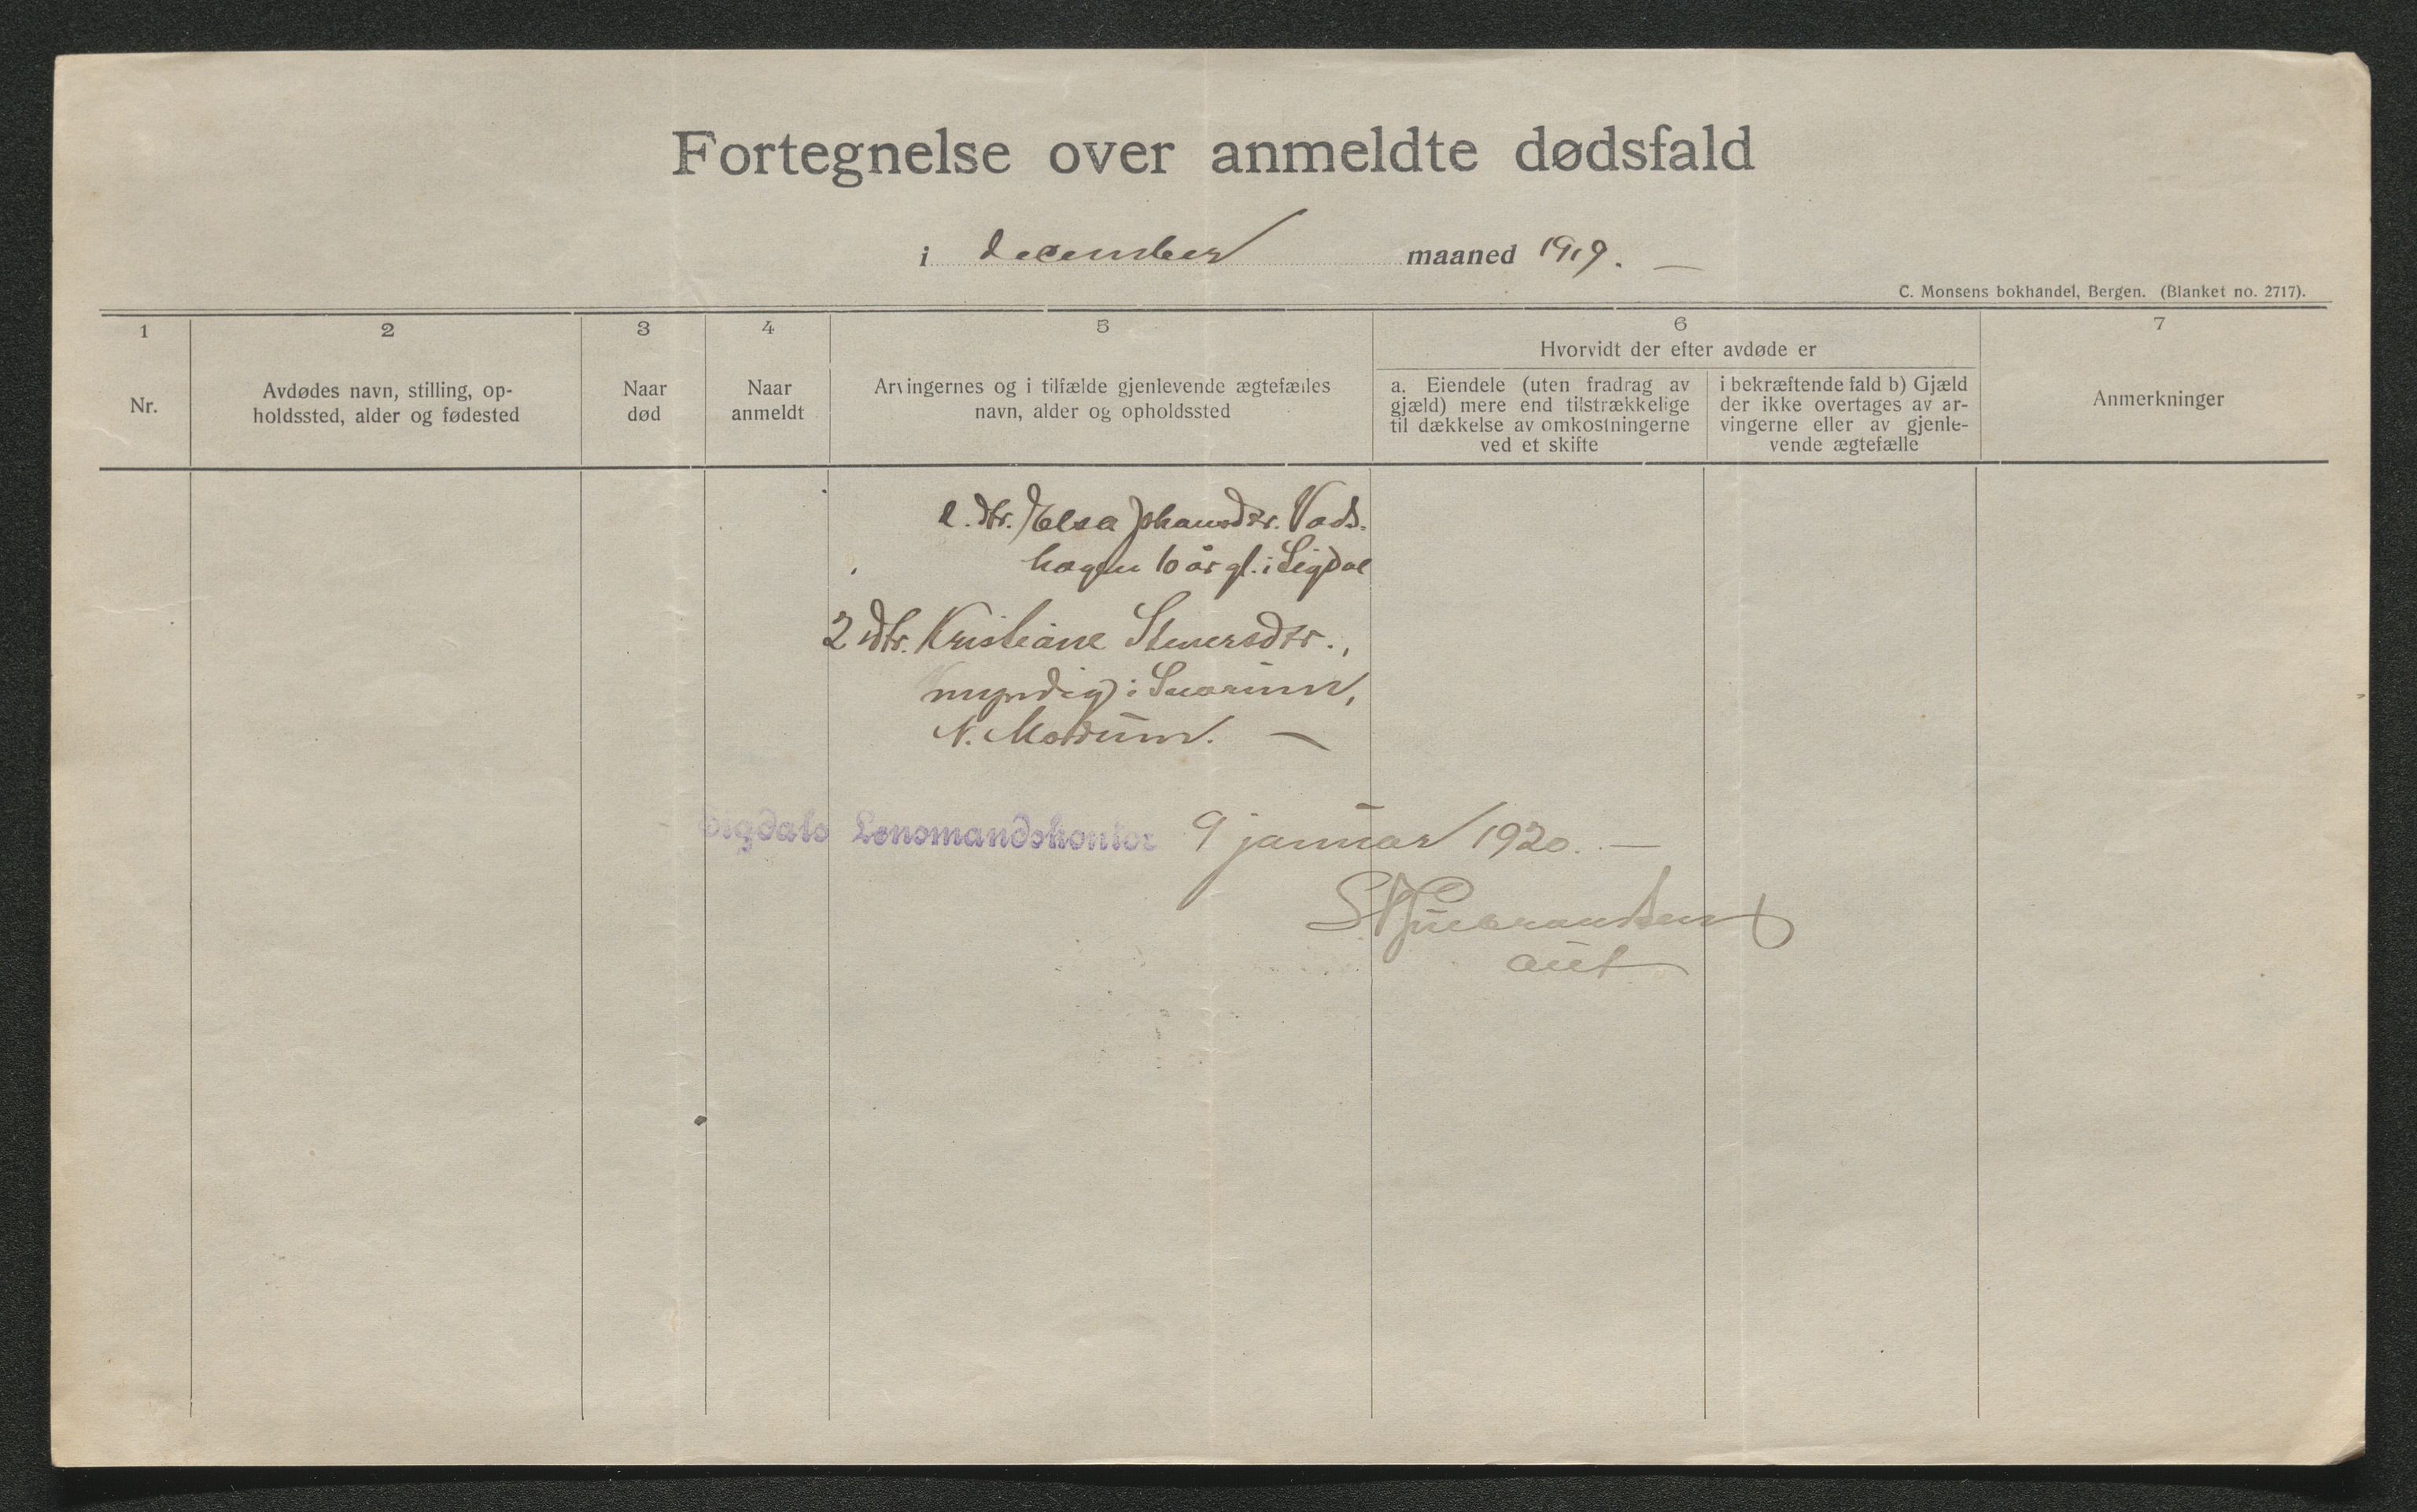 Fortegnelse over anmeldte dødsfald
i december maaned 1919. —
C. Monsens bokhandel, Bergen. (Blanket no. 2717).
1 2 3 4 5 6 7
Hvorvidt der efter avdøde er
Nr.
Avdødes navn, stilling, op-
holdssted, alder og fødested
Naar
død
Naar
anmeldt
Arvingernes og i tilfælde gjenlevende ægtefælles
navn, alder og opholdssted
a. Eiendele (uten fradrag av
gjæld) mere end tilstrækkelige
til dækkelse av omkostningerne
ved et skifte
i bekræftende fald b) Gjæld
der ikke overtages av ar-
vingerne eller av gjenle-
vende ægtefælle
Anmerkninger
e. dtr. Elsa Johansdtr. Vads-
hagen 10 år gl. i Sigdal
2 dtr. Kristiane Steersdtr.,
myndig i
N. Modum. —
Sigdals Lensmandskontor 9 januar 1920. —
aut